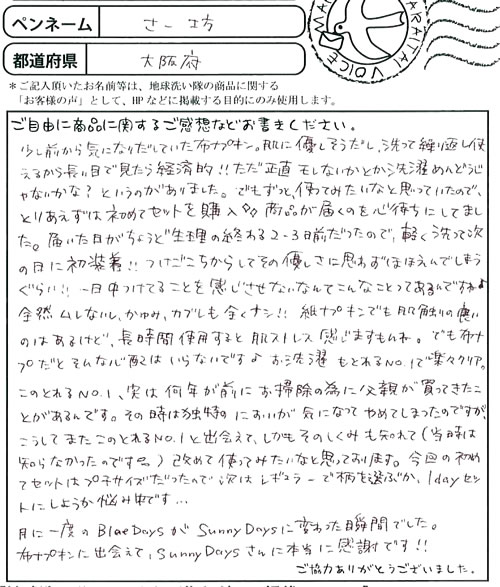 ペンネーム さー坊
都道府県 大阪府
MA
ARATAI VOICE
*ご記入頂いたお名前等は、地球洗い隊の商品に関する
「お客様の声」として、HPなどに掲載する目的にのみ使用します。
ご自由に商品に関するご感想などお書きください。
少し前から気になりだしていた布ナプキン。肌に優しそうだし、洗って繰り返し使
えるから長い目で見たら経済的!!ただ正直モレないかとか洗濯めんどうじ
ゃないかな?というのがありました。でもずっと、使ってみたいなと思っていたので、
とりあえずは初めてセットを購入 商品が届くのを心待ちにしてまし
た。届いた日がちょうど生理の終わる2~3日前だったので、軽く洗って次
の日に初装着!!つけごこちからしてその優しさに思わずほほえんでしまう
ぐらい!!一日中つけてることを感じさせないなんてこんなことってあるんですね♪
全然ムレないし、かゆみ、カブレも全くナシ!!紙ナプキンでも肌触りの良い
のはあるけど、長時間使用すると肌ストレス感じますもんね。でも布ナ
プだとそんな心配はいらないです♪お洗濯もとれるNO.1で楽々クリア。
このとれるNO.1、実は何年か前にお掃除の為に父親が買ってきたこ
とがあるんです。その時は独特のにおいが気になってやめてしまったのですが、
こうしてまたこのとれるNO.1と出会えて、しかもそのしくみも知れて(当時は
知らなかったのです。。)改めて使ってみたいなと思っております。今回の初めて
セットはプチサイズだったので次はレギュラーで柄を選ぶか、1dayセッ
トにしようか悩み中です…
月に一度のBlueDaysがSunnyDaysに変わった瞬間でした。
布ナプキンに出会えて、SunnyDaysさんに本当に感謝です!!
ご協力ありがとうございました。